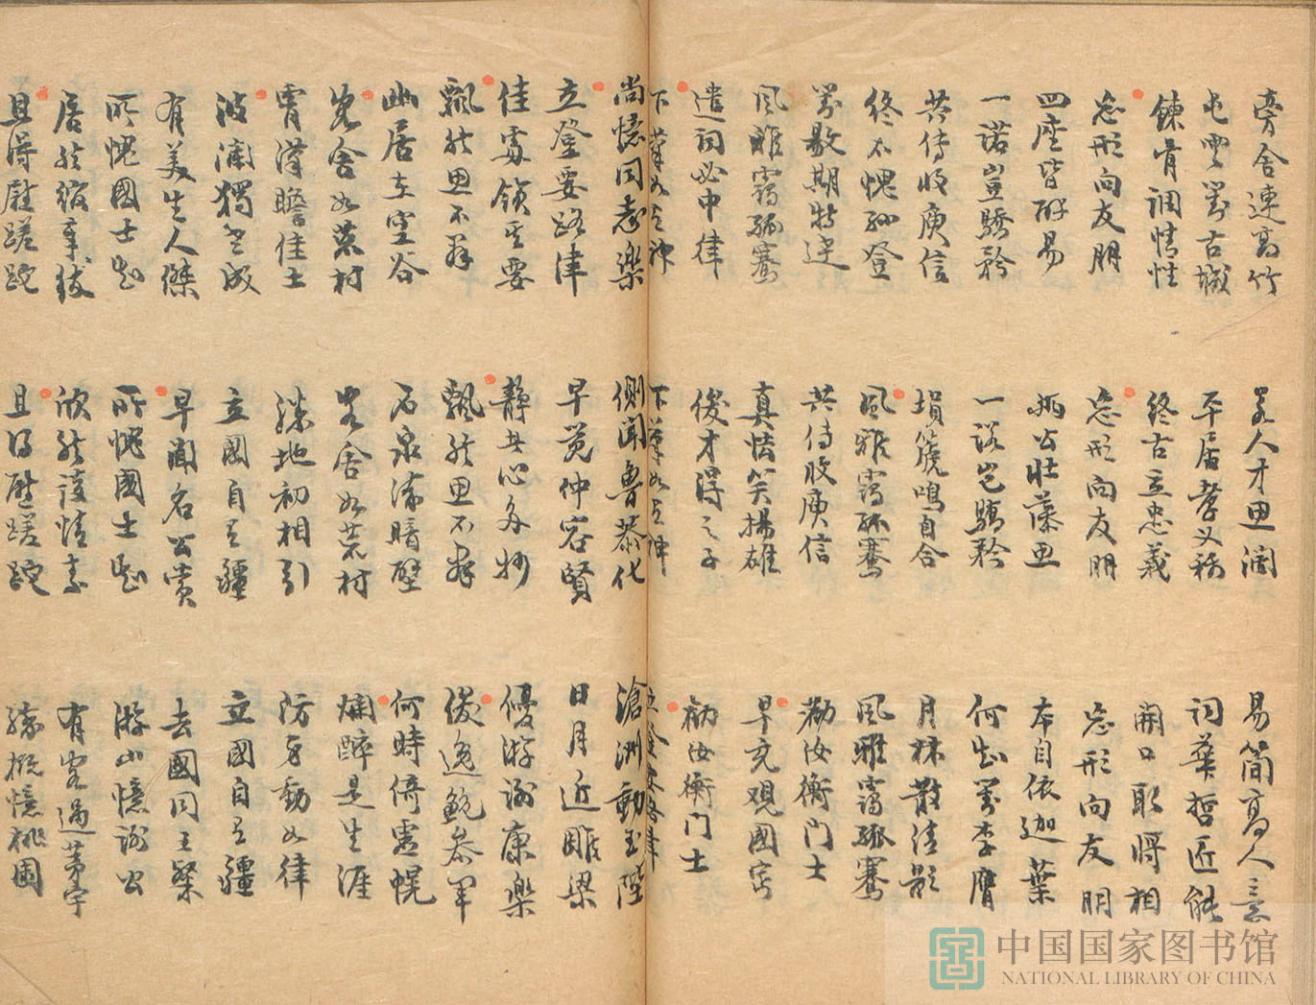 旁舍連高竹
屯雲對古城
鍊骨調情性
忘形向友朋
四座皆辟易
一諾豈驕矜
共傳收庾信
終不愧孫登
對敭期特達
風雅靄孤騫
遣詞必中律
下筆如有神
尚憶同樂
立登要路津
佳處領其要
飄然思不群
幽居在空谷
客舍如荒村
霄漢瞻佳士
波瀾獨老成
有美生人傑
所愧國士知
居然綰章紱
且得慰蹉跎
若人才思闊
平居孝义稱
終古立忠義
忘形向友朋
公壯藻思
一諾豈驕矜
塤篪鳴自合
風雅靄孤騫
共傳收庾信
真怯笑揚雄
俊才得之子
下筆如有神
側聞魯恭化
早覺仲容賢
靜者心多妙
飄然思不群
石泉流暗壁
客舍如荒村
勝地初相引
立國自有疆
早聞名公賞
所愧國士知
欣然談情素
且得慰蹉跎
易簡高人意
詞華哲匠能
開口取將相
忘形向友朋
本自依迦葉
何知對李膺
月林散清影
風雅靄孤騫
勸汝衡門士
早充觀國賓
勸汝衡門士
立登要路津
滄洲動玉陛
日月近雕梁
優游謝康樂
俊逸鮑參軍
何時倚虛幌
爛醉是生涯
防身動如律
立國自有疆
去國同王粲
游山憶謝公
有客過茅宇
憶桃園
中国国家图书馆
NATIONAL LIBRARY OF CHINA